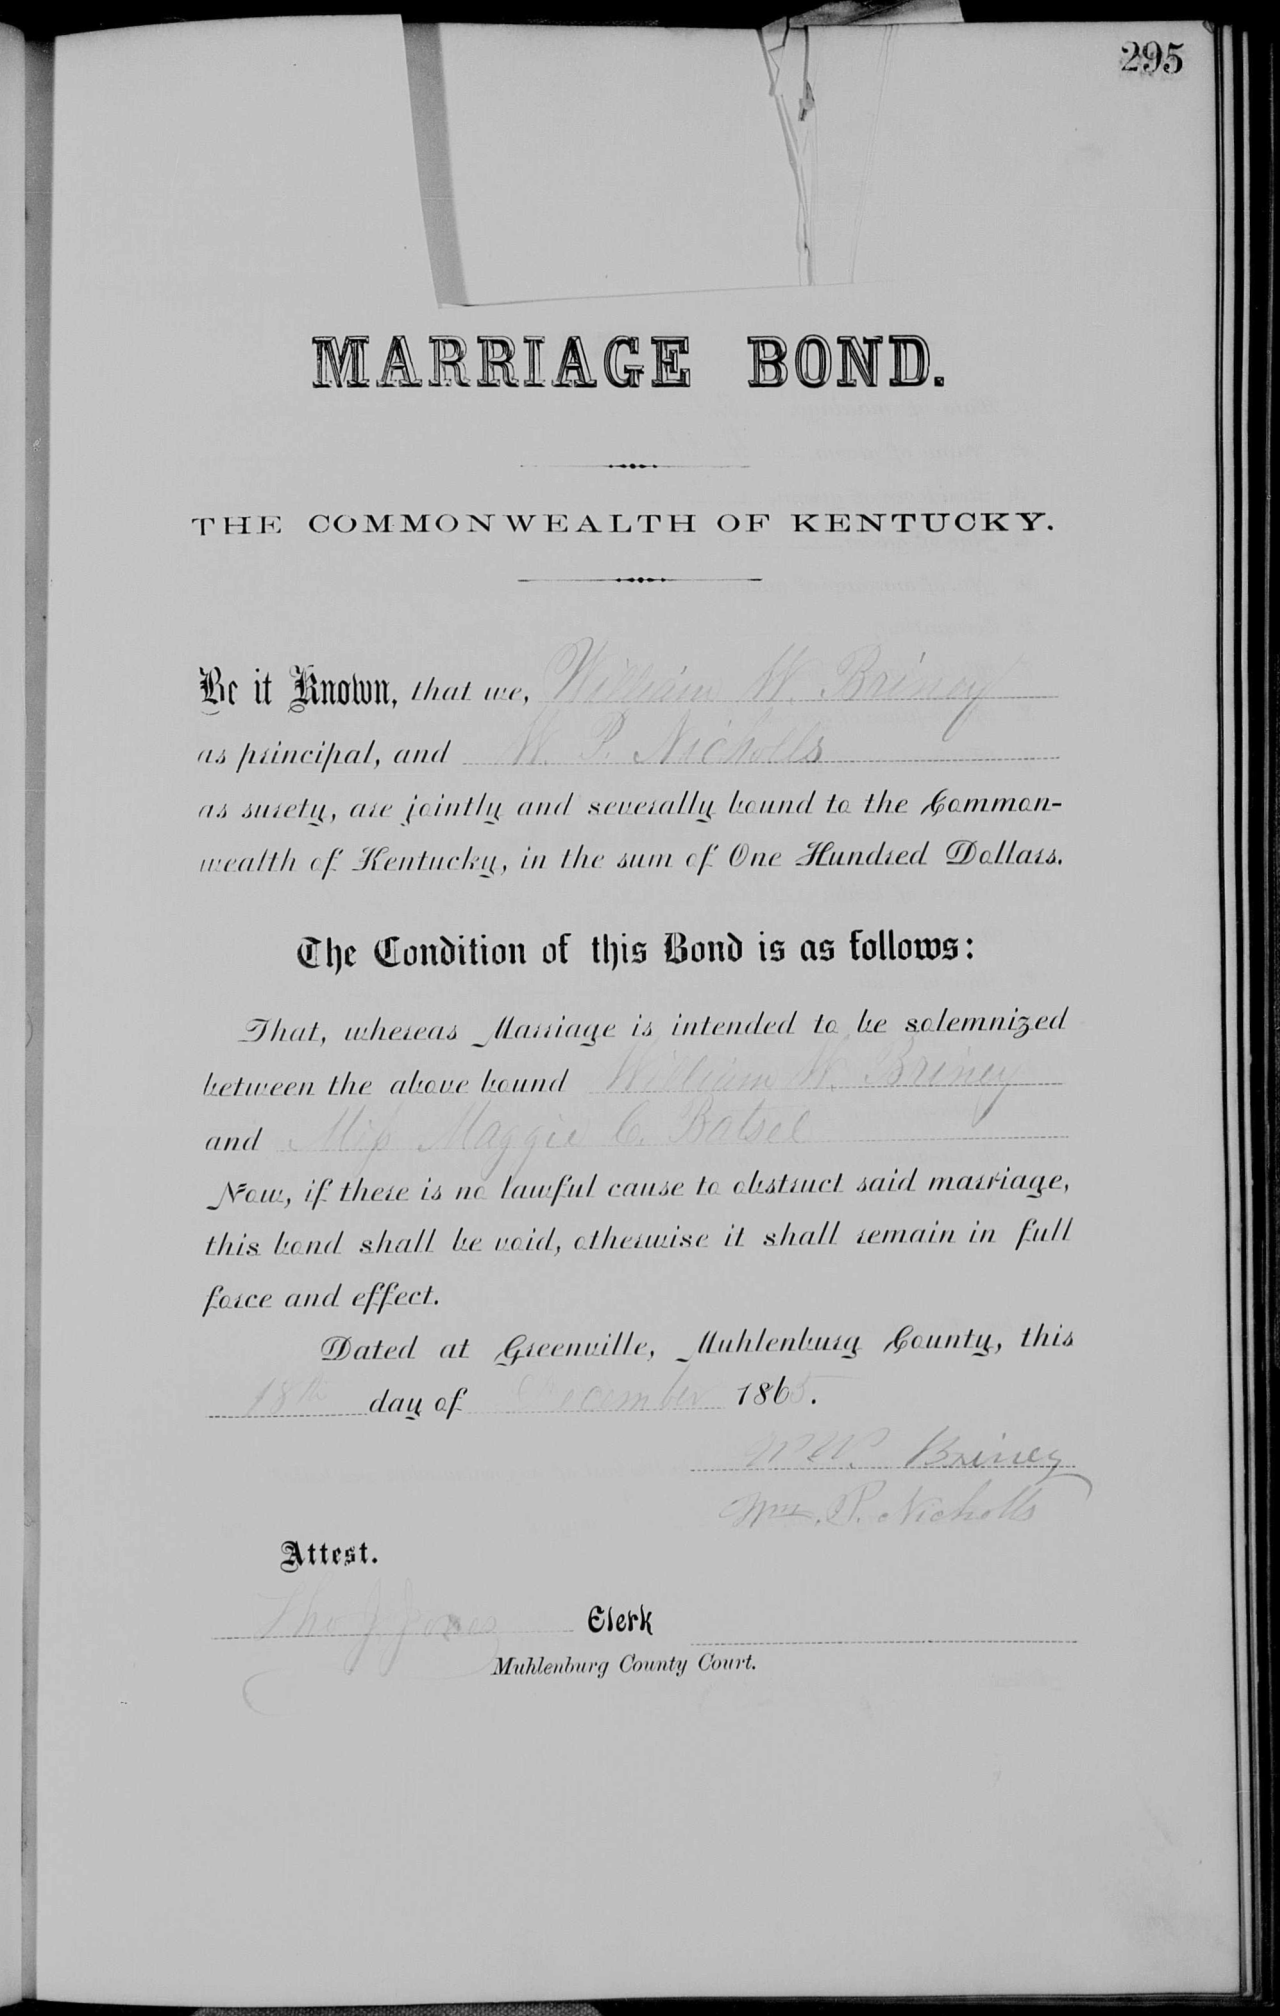 295
MARRIAGE BOND.
THE COMMONWEALTH OF KENTUCKY.
Be it Known, that we, William W. Briney
as principal, and W. P. Nicholls
as surety, are jointly and severally bound to the Common-
wealth of Kentucky, in the sum of One Hundred Dollars.
The Condition of this Bond is as follows:
That, whereas Marriage is intended to be solemnized
between the above bound William W. Briney
and Miss Maggie C. Batsel
Now, if there is no lawful cause to obstruct said marriage,
this bond shall be void, otherwise it shall remain in full
force and effect.
Dated at Greenville, Muhlenburg County, this
18th day of December 1865.
W. W. Briney
Wm. P. Nicholls
Attest.
Tho J. Jones Clerk
Muhlenburg County Court.